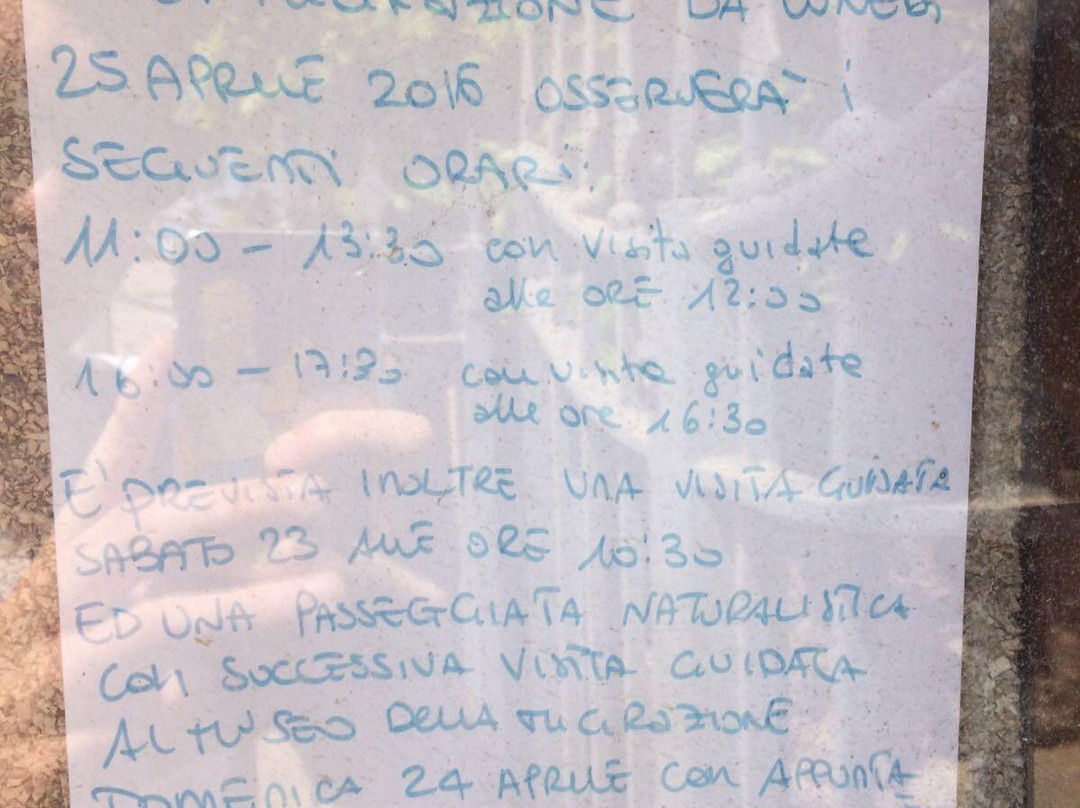 DA LUNEDI
25 APRILE 2016 OSSERVERÀ i
SEGUENTI ORARI:
11:00 - 13:30 con visita guidate
alle ORE 12:00
16:00 - 17:30 con visita guidate
alle ore 16:30
E' PREVISTA INOLTRE UNA VISITA GUIDATA
SABATO 23 ALLE ORE 10:30
ED UNA PASSEGGIATA NATURALISTICA
CON SUCCESSIVA VISITA GUIDATA
AL MUSEO DELLA MIGRAZIONE
DOMENICA 24 APRILE CON APPUNTA